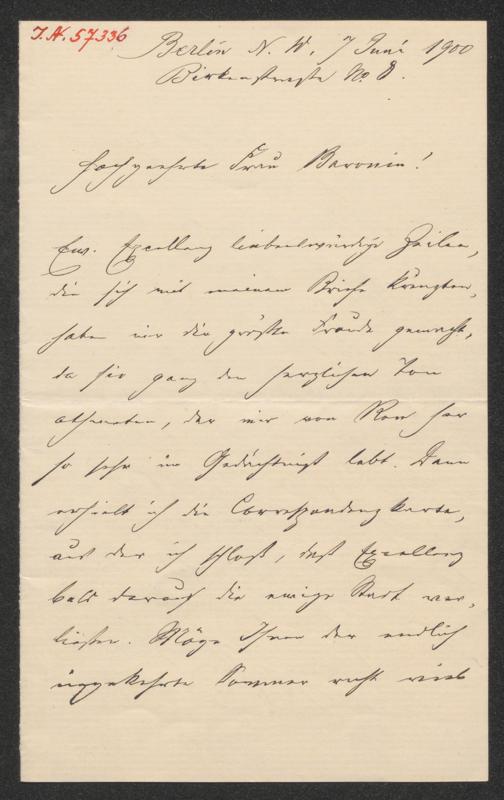 J. N. 57336
Berlin N. W. 7 Juni 1900
Birkenstraße No 8.
Hochgeehrte Frau Baronin!
Ew. Excellenz liebenswürdige Zeilen,
die sich mit meinem Briefe kreuzten,
haben mir die größte Freude gemacht,
da sie ganz den herzlichen Ton
athmeten, der mir von Rom her
so sehr im Gedächtniß lebt. Dann
erhielt ich die Correspondenzkarte,
aus der ich schloß, daß Excellenz
bald darauf die ewige Stadt ver-
ließen. Möge Ihnen der endlich
eingekehrte Sommer recht viel